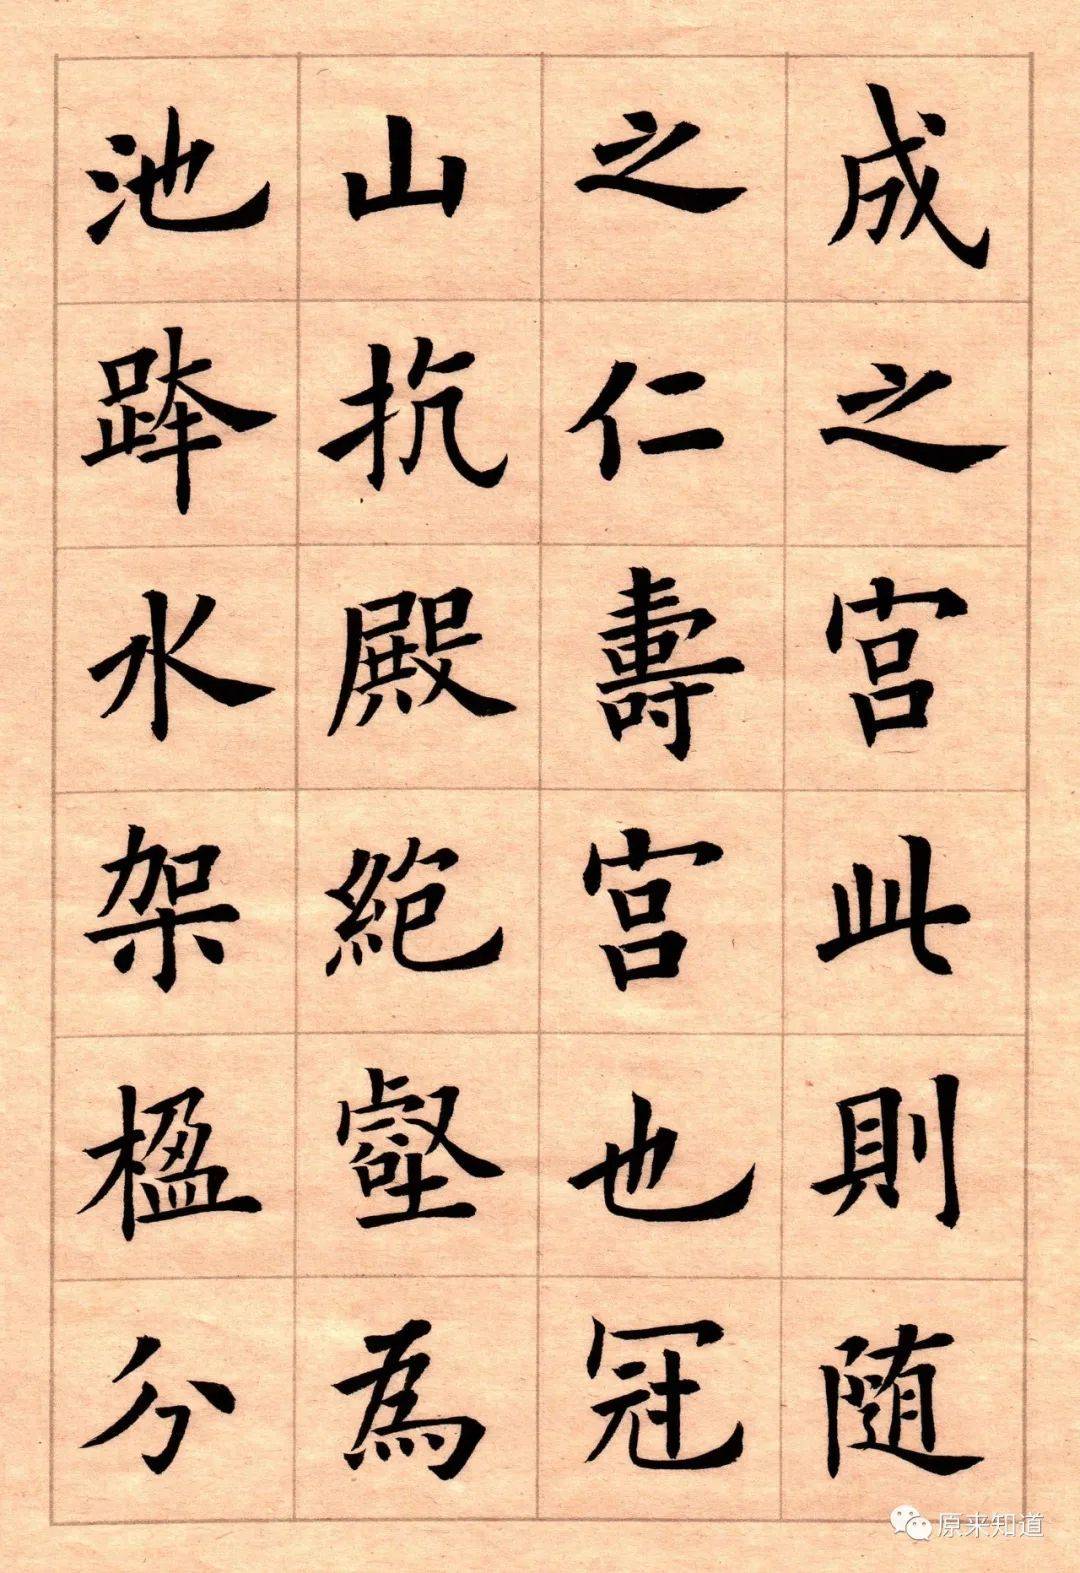 成之宫此則随
之仁壽宫也冠
山抗殿絶壑為
池跨水架楹分
原来知道